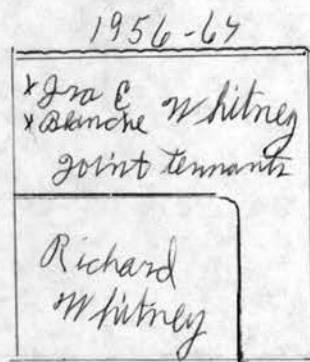 1956-64
x Ira E
x Blanche Whitney
joint tennants
Richard
Whitney